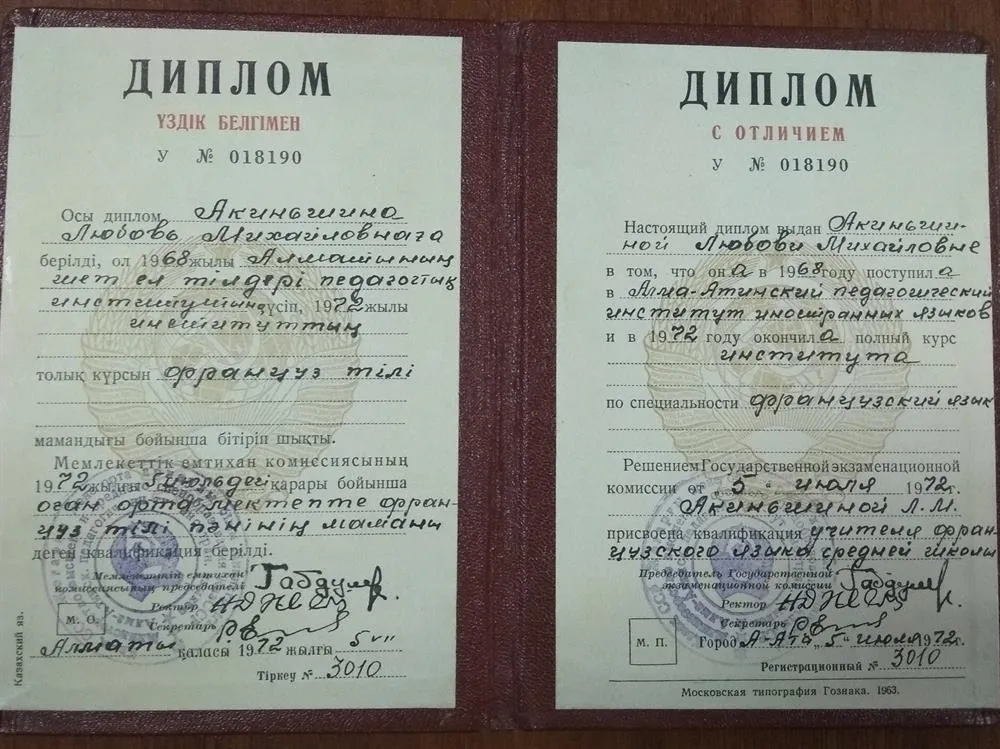 ДИПЛОМ
ҮЗДІК БЕЛГІМЕН
У № 018190
Осы диплом Акиньшина
Любовь Михайловнаға
берілді, ол 1968 жылы Алматының
шет ел тілдері педагогтық
институтына түсіп, 1972 жылы
институттың
толық курсын француз тілі
мамандығы бойынша бітіріп шықты.
Мемлекеттік емтихан комиссиясының
1972 жылғы 5 июльдегі қарары бойынша
оған орта мектепте фран-
цуз тілі пәнінің маманы
деген квалификация берілді.
Мемлекеттік емтихан
комиссиясының председателі
Ректор
Секретарь
М. О.
Алматы қаласы 1972 жылғы „5"
Тіркеу № 3010
Казахский яз.
ДИПЛОМ
С ОТЛИЧИЕМ
У № 018190
Настоящий диплом выдан Акиньши-
ной Любови Михайловне
в том, что она в 1968 году поступила
в Алма-Атинский педагогический
институт иностранных языков
и в 1972 году окончила полный курс
института
по специальности французский язык
Решением Государственной экзаменационной
комиссии от „5" июля 1972 г.
Акиньшиной Л. М.
присвоена квалификация учителя фран-
цузского языка средней школы
Председатель Государственной
экзаменационной комиссии
Ректор
Секретарь
М. П.
Город А-Ата „5" июля 1972 г.
Регистрационный № 3010
Московская типография Гознака. 1963.